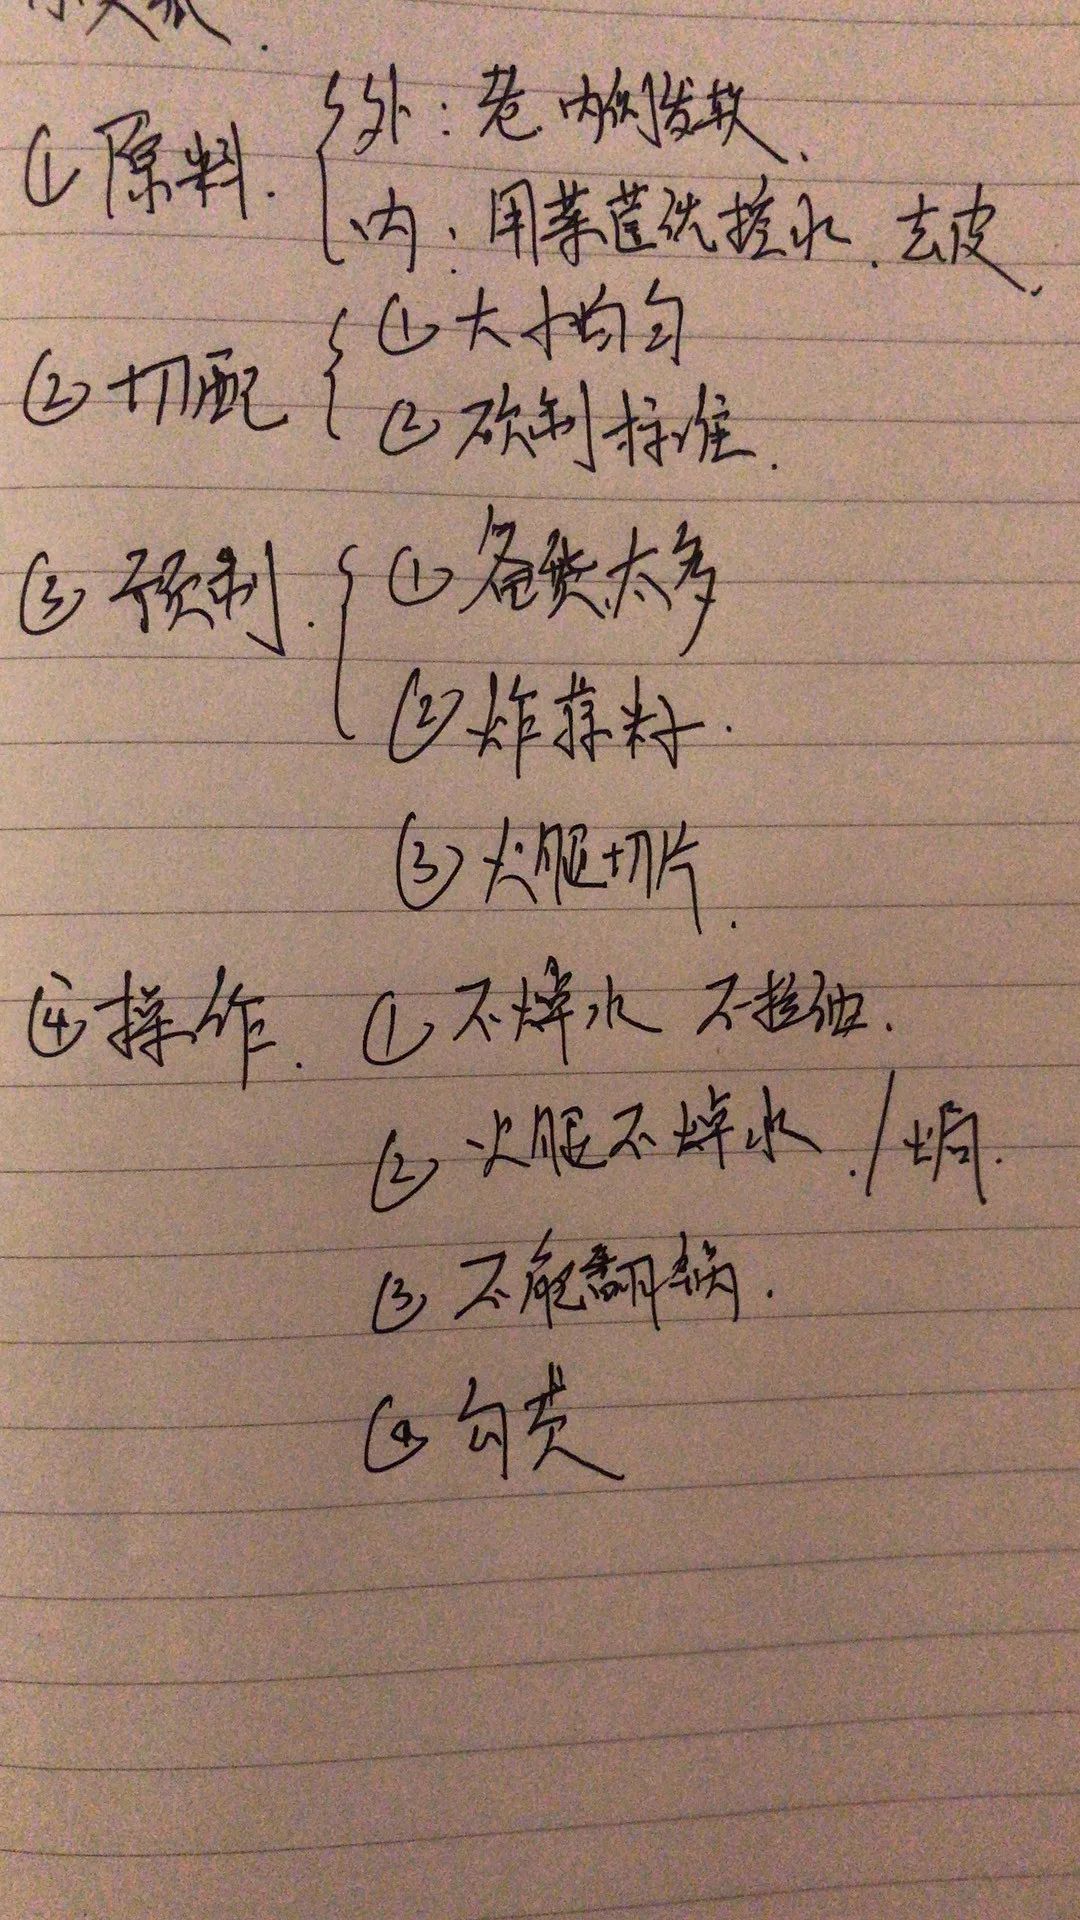 ① 原料. 外: 老. 内侧发软.
内: 用菜筐洗控水. 去皮.
② 切配 ① 大小均匀
② 砍制标准.
③ 预制. ① 备货太多
② 炸蒜籽.
③ 火腿切片.
④ 操作. ① 不焯水 不拉油.
② 火腿不焯水. / 焗.
③ 不能翻锅.
④ 勾芡